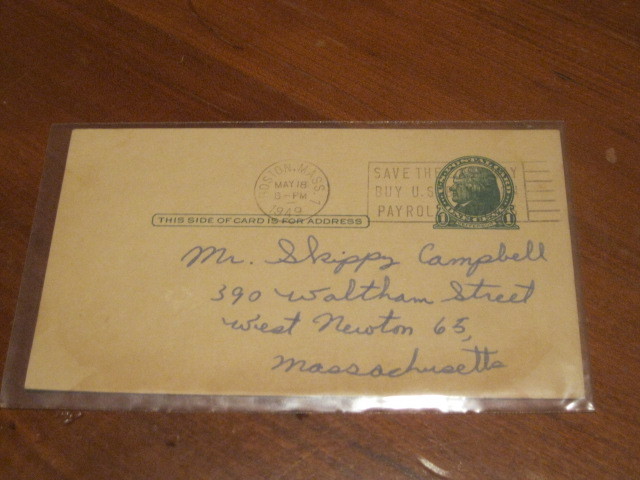 BOSTON, MASS. 1
MAY 18
1949
SAVE
BUY U.S.
PAYROL
U.S. POSTAL CARD
1 1
THIS SIDE OF CARD IS FOR ADDRESS
Mr. Skippy Campbell
390 Waltham Street
West Newton 65,
Massachusetts